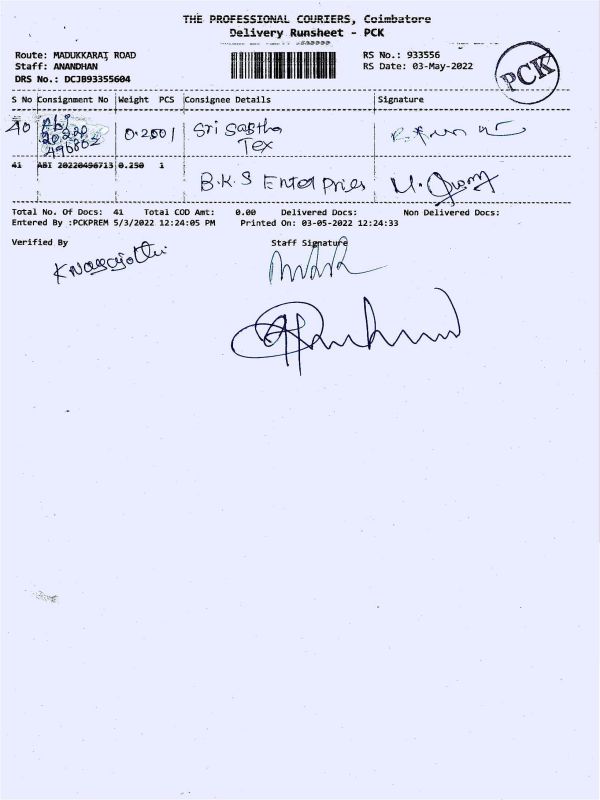 THE PROFESSIONAL COURIERS, Coimbatore
Delivery Runsheet - PCK
Route: MADUKKARAI ROAD
RS No.: 933556
Staff: ANANDHAN
RS Date: 03-May-2022
DRS No.: DCJB93355604
PCK
S No Consignment No Weight PCS Consignee Details Signature
40 Abi 20220 496802 0.250 1 Sri Sastha Tex
41 ABI 20220496713 0.250 1
B.K.S Enterpries
Total No. Of Docs: 41 Total COD Amt: 0.00 Delivered Docs: Non Delivered Docs:
Entered By :PCKPREM 5/3/2022 12:24:05 PM Printed On: 03-05-2022 12:24:33
Verified By Staff Signature